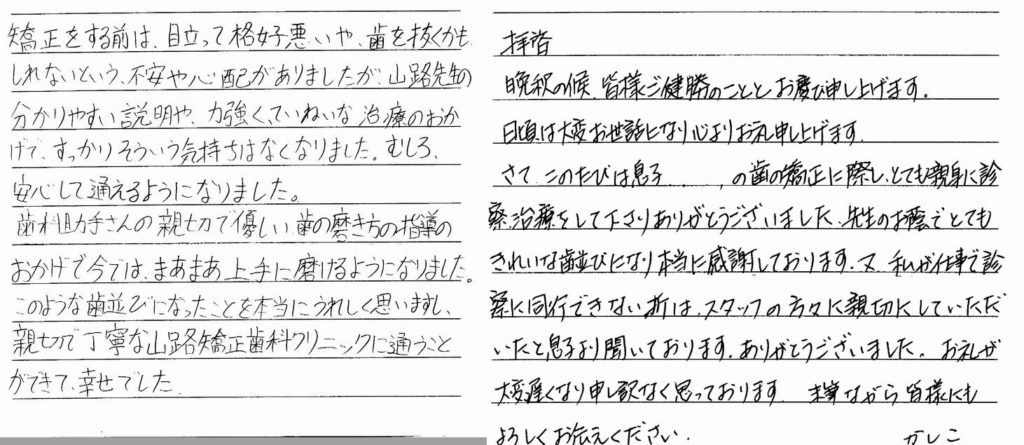 矯正をする前は、目立って格好悪いや、歯を抜くかも
しれないという、不安や心配がありましたが、山路先生の
分かりやすい説明や、力強くていねいな治療のおか
げで、すっかりそういう気持ちはなくなりました。むしろ、
安心して通えるようになりました。
歯科助手さんの親切で優しい歯の磨き方の指導の
おかげで今では、まあまあ上手に磨けるようになりました。
このような歯並びになったことを本当にうれしく思いますし、
親切で丁寧な山路矯正歯科クリニックに通うこと
ができて、幸せでした
拝啓
晩秋の候、皆様ご健勝のことと、お慶び申し上げます。
日頃は大変お世話になり心よりお礼申し上げます。
さて、このたびは息子、の歯の矯正に際し、とても親身に診
察治療をして下さりありがとうございました。先生のお蔭でとても
きれいな歯並びになり本当に感謝しております。又、私が仕事で診
察に同行できない折は、スタッフの方々に親切にしていただ
いたと、息子より聞いております。ありがとうございました。お礼が
大変遅くなり申し訳なく思っております。末筆ながら皆様にも
よろしくお伝えください。かしこ